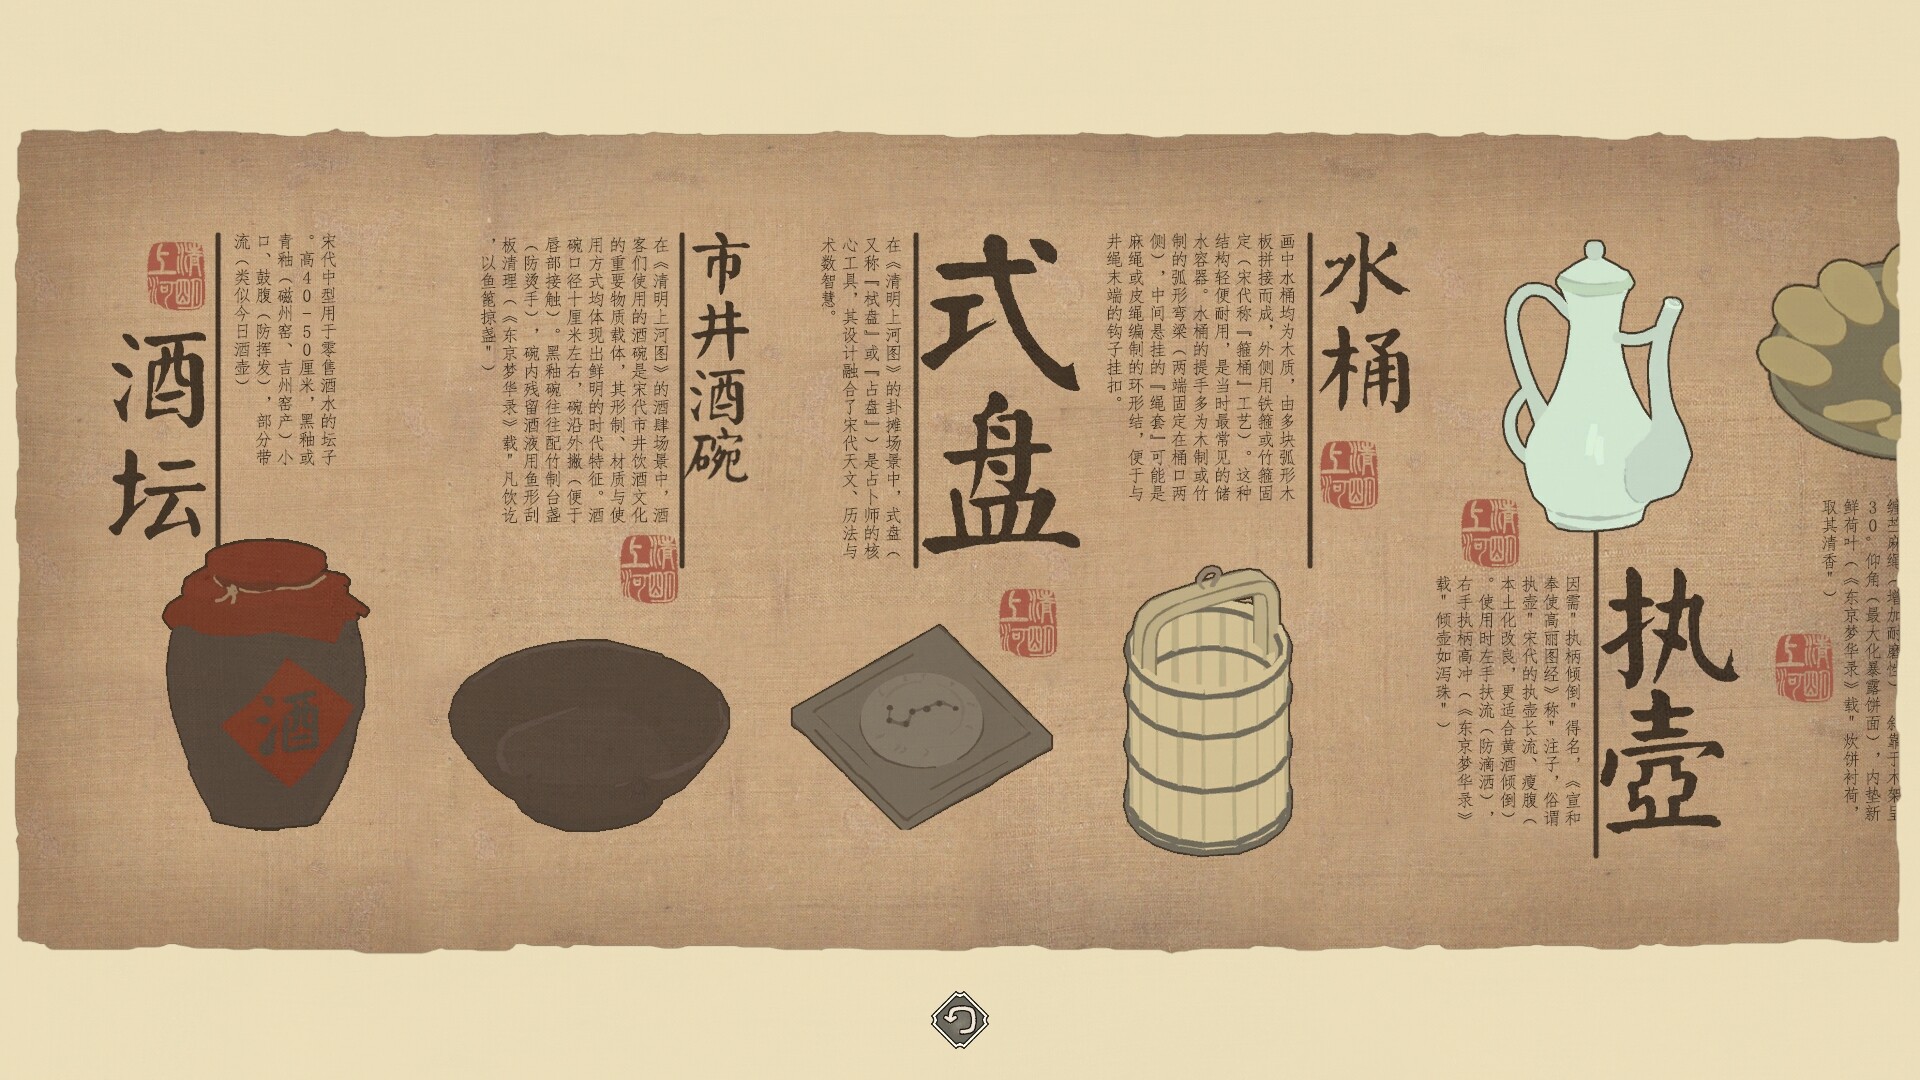 鲜荷叶（《东京梦华录》载"炊饼衬荷，
取其清香"）
清明
上河
执壶
因需"执柄倾倒"得名，《宣和
奉使高丽图经》称"注子，俗谓
执壶"宋代的执壶长流、瘦腹（
本土化改良，更适合黄酒倾倒）
。使用时左手扶流（防滴洒），
右手执柄高冲（《东京梦华录》
载"倾壶如泻珠"）
清明
上河
水桶
清明
上河
画中水桶均为木质，由多块弧形木
板拼接而成，外侧用铁箍或竹箍固
定（宋代称『箍桶』工艺）。这种
结构轻便耐用，是当时最常见的储
水容器。水桶的提手多为木制或竹
制的弧形弯梁（两端固定在桶口两
侧），中间悬挂的『绳套』可能是
麻绳或皮绳编制的环形结，便于与
井绳末端的钩子挂扣。
式盘
清明
上河
在《清明上河图》的卦摊场景中，式盘（
又称『栻盘』或『占盘』）是占卜师的核
心工具，其设计融合了宋代天文、历法与
术数智慧。
市井酒碗
在《清明上河图》的酒肆场景中，酒
客们使用的酒碗是宋代市井饮酒文化
的重要物质载体，其形制、材质与使
用方式均体现出鲜明的时代特征。酒
碗口径十厘米左右，碗沿外撇（便于
唇部接触）。黑釉碗往往配竹制台盏
（防烫手），碗内残留酒液用鱼形刮
板清理（《东京梦华录》载"凡饮讫
，以鱼篦掠盏"）
清明
上河
宋代中型用于零售酒水的坛子
。高40-50厘米，黑釉或
青釉（磁州窑、吉州窑产）小
口、鼓腹（防挥发），部分带
流（类似今日酒壶）
清明
上河
酒坛
酒